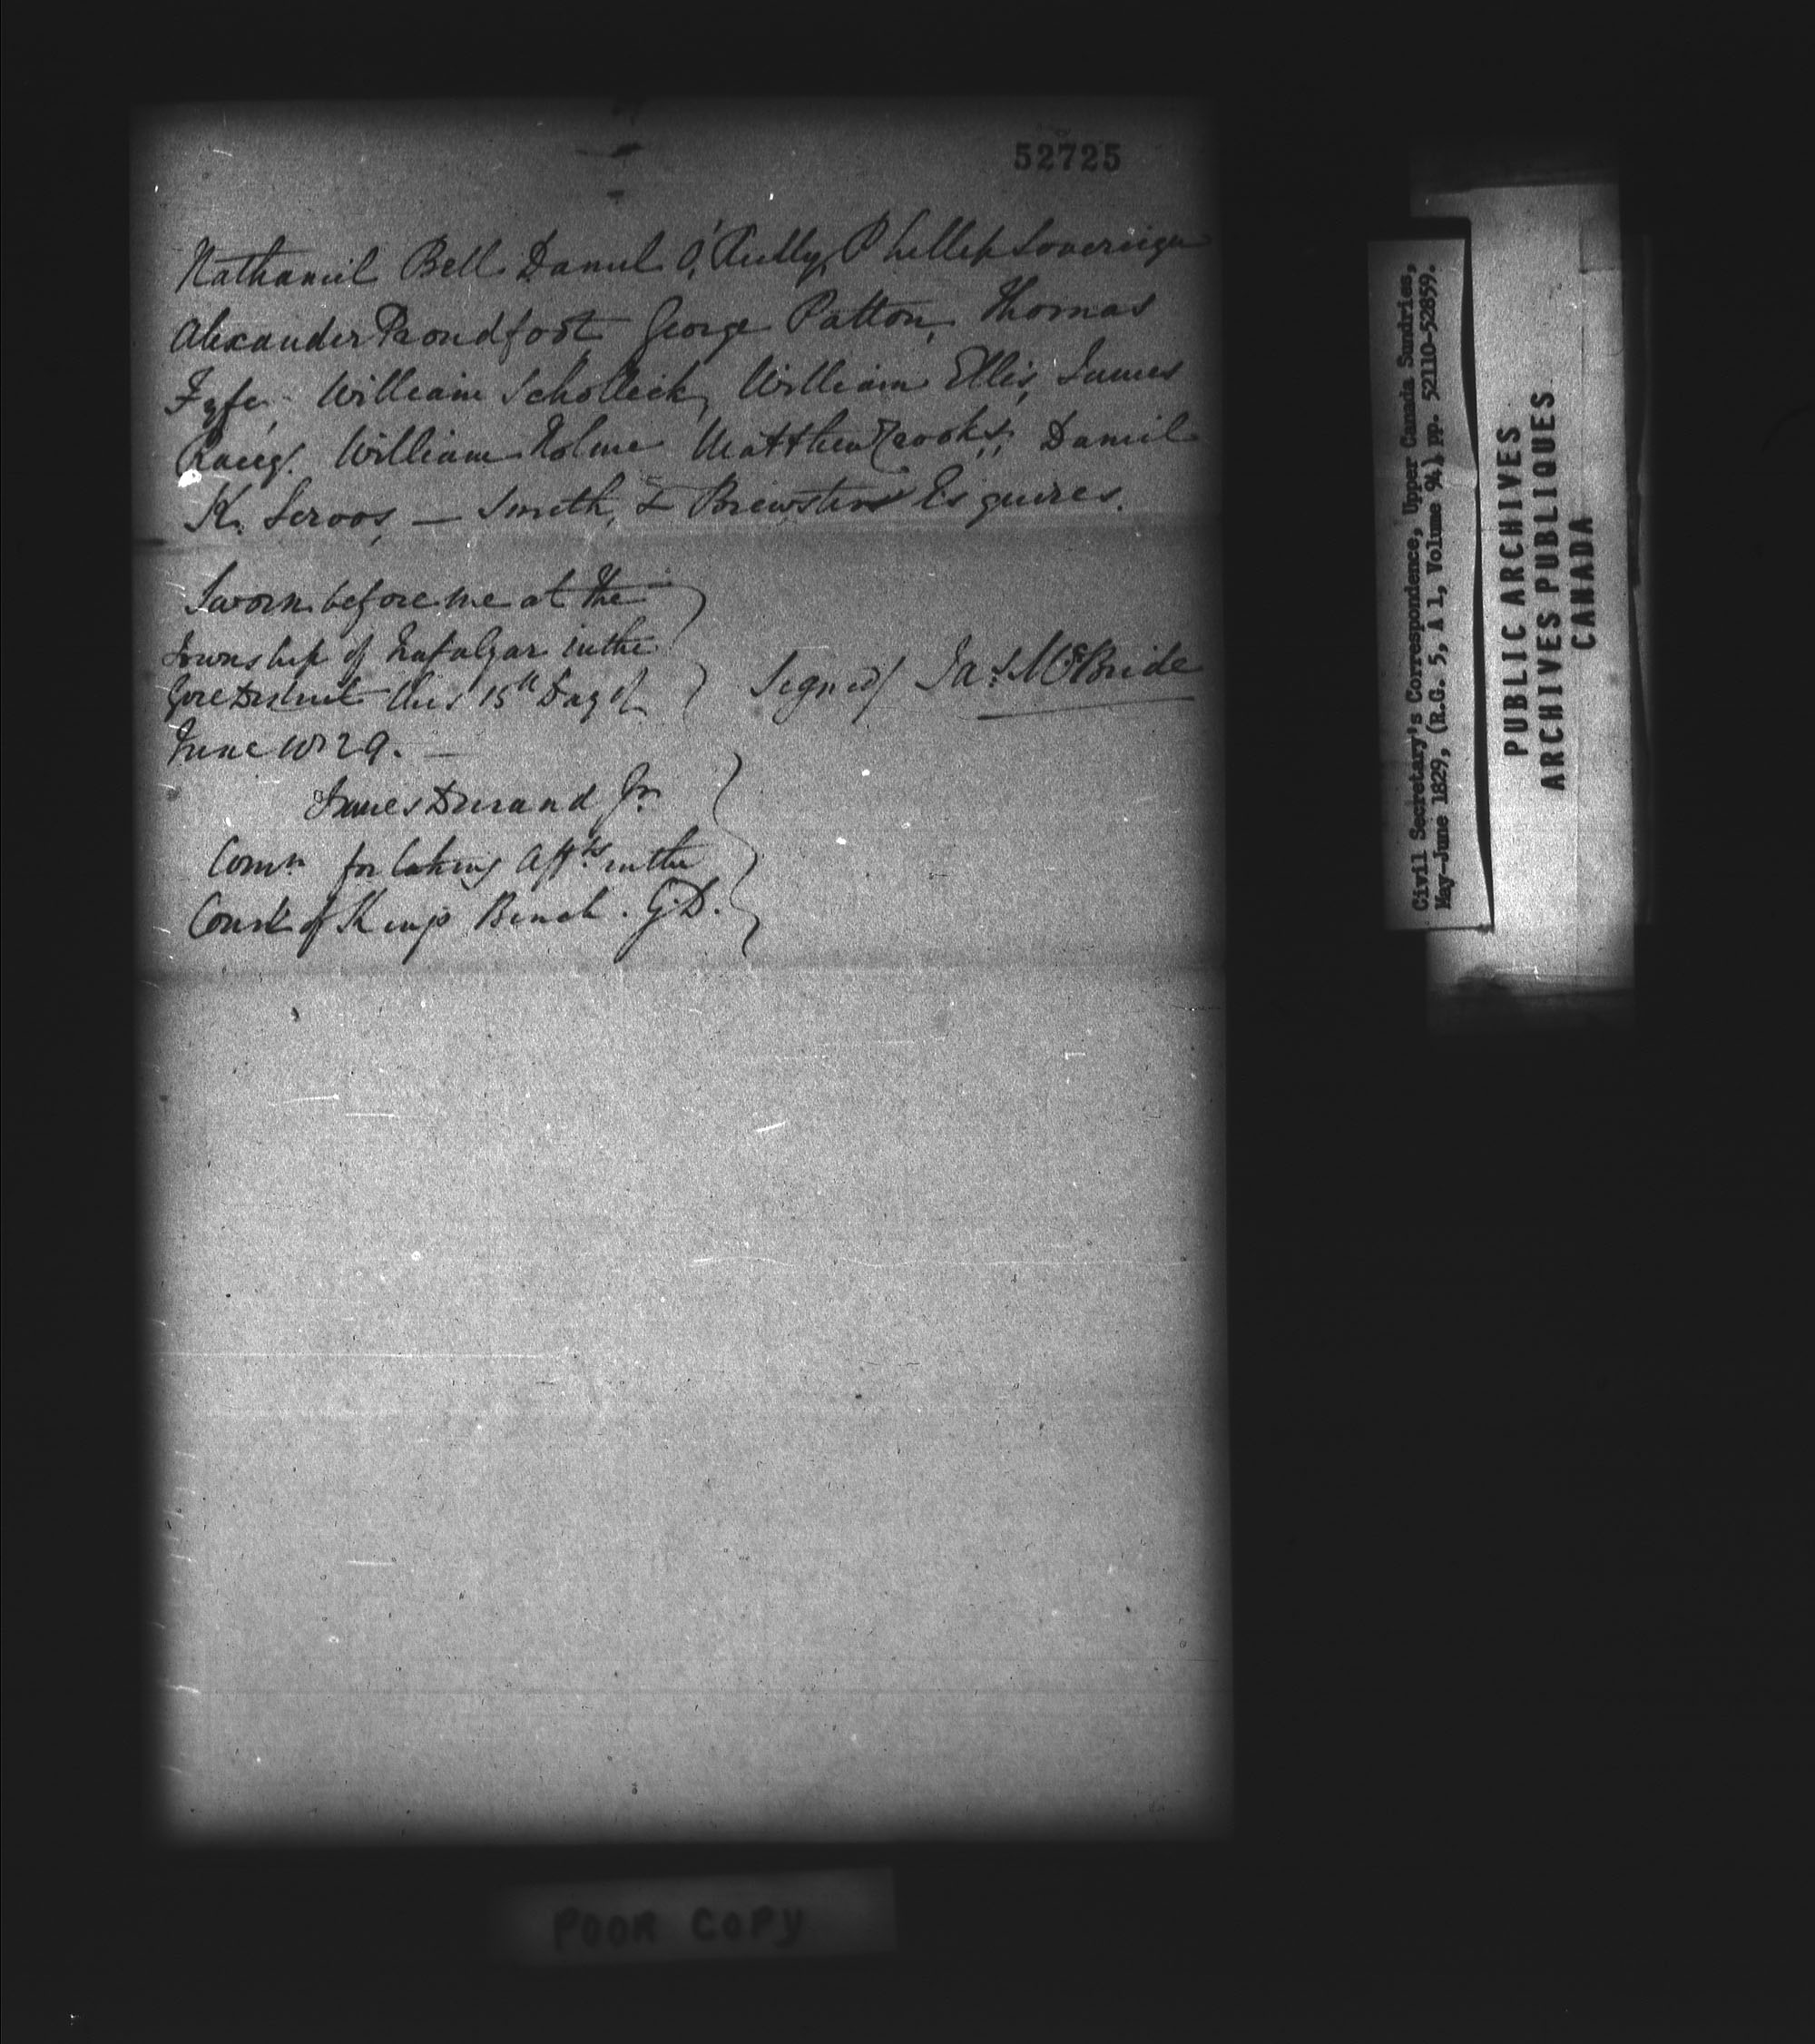 52725
Nathaniel Bell Daniel O,'Reilly, Phillip Sovereign
Alexander Proudfoot George Patton, Thomas
Fyfe, William Scholleck, William Ellis, James
Racey. William Holme Matthew Crooks, Daniel
K. Servos, — Smith, & Brewster Esquires.
Sworn before me at the
Township of Trafalgar in the
Gore District this 15th Day of
June 1829. —
Signed/ Jas McBride
James Durand Jr
Comr for taking Affts in the
Court of Kings Bench. G.D.
Civil Secretary's Correspondence, Upper Canada Sundries,
May-June 1829, (R.G. 5, A 1, Volume 94), pp. 52110-52859.
PUBLIC ARCHIVES
ARCHIVES PUBLIQUES
CANADA
POOR COPY